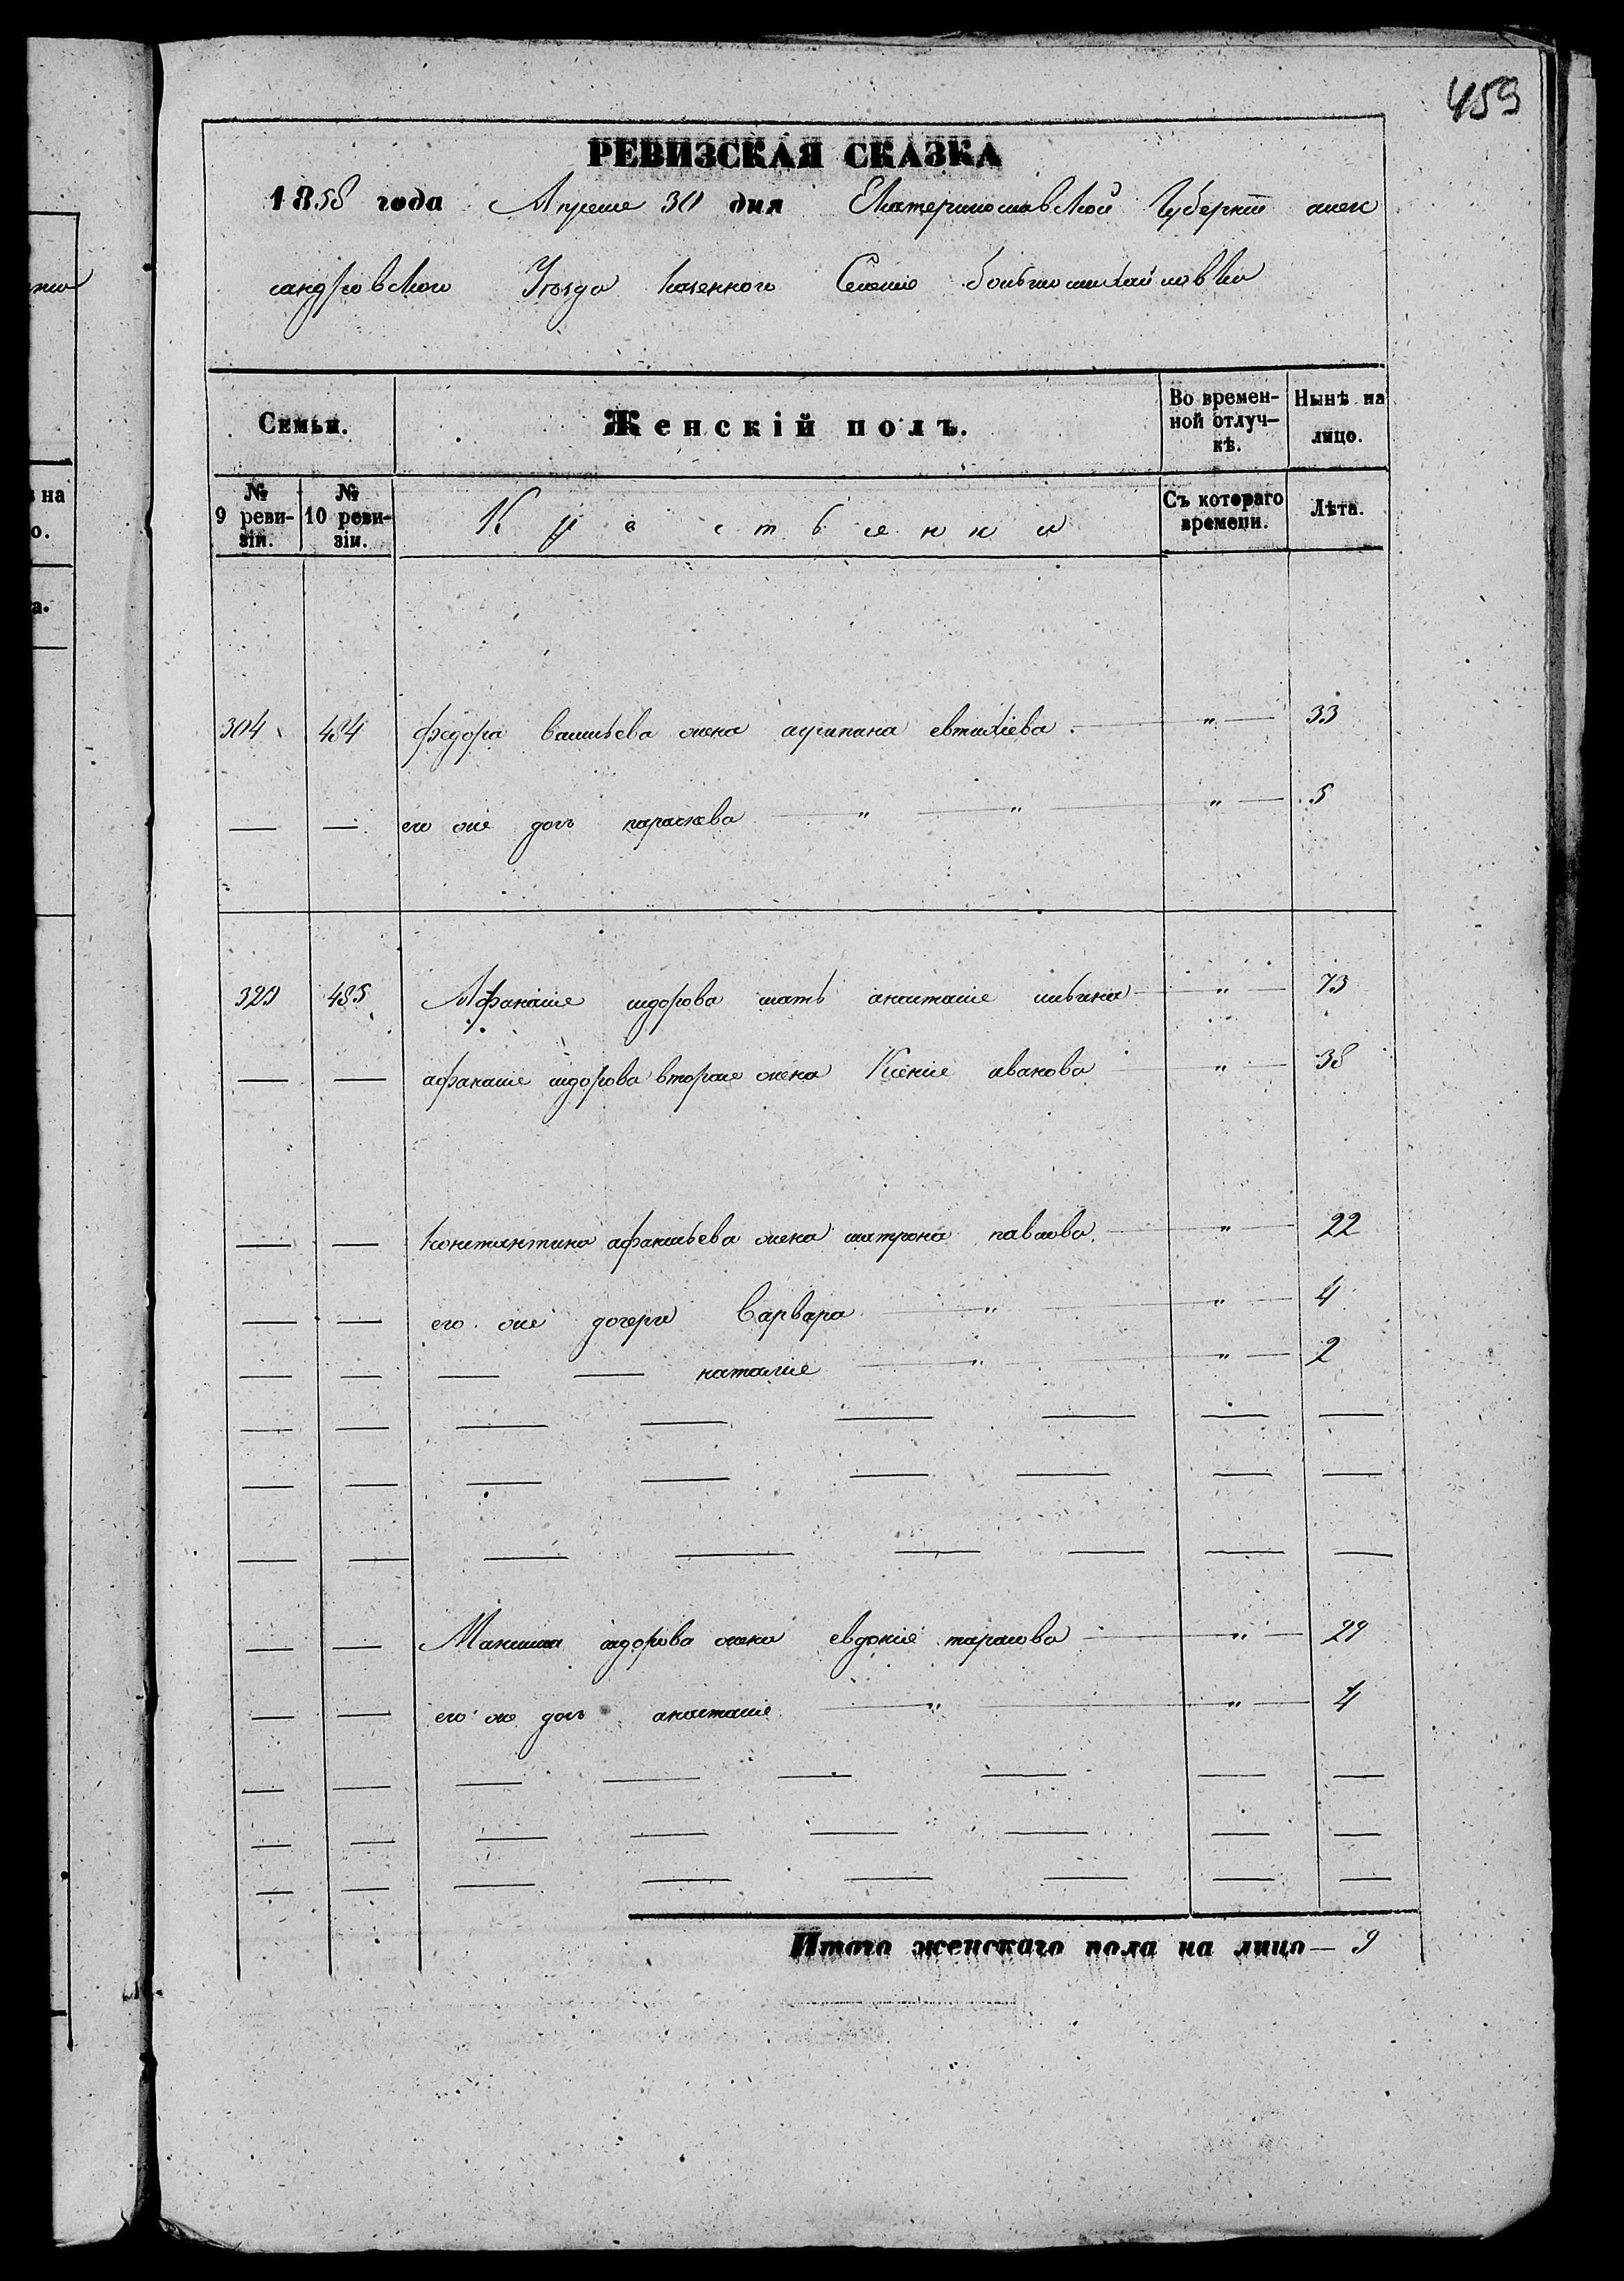 459
РЕВИЗСКАЯ СКАЗКА
1858 года Апреля 30 дня Екатеринославской Губернии алек
сандровского Уезда казенного Селения большемихайловки
Семьи. Женскій полъ. Во времен-ной отлуч-кѣ. Нынѣ на лицо.
№ 9 реви-зіи. № 10 реви-зіи. Крестьянки Съ котораго времени. Лѣта.
304 484 Федора васильева жена агрипина евтихіева — " — 33
— — его же дочь парасковія — " — " — " — 5
320 485 Афанасія сидорова мать анастасія ильина — " — 73
— — афанасія сидорова вторая жена Ксенія иванова " — 38
— — константина афанасьева жена матрона павлова — " — 22
— — его же дочери Варвара — " — " — 4
— — — — наталія — " — " — 2
— — — — — — — —
— — — — — — — —
— — — — — — — —
— — Максима сидорова жена евдокія тарасова — " — 29
— — его же дочь анастасія — " — " — 4
— — — — — — — —
— — — — — — — —
— — — — — — — —
Итого женскаго пола на лицо — 9
на
о.
а.